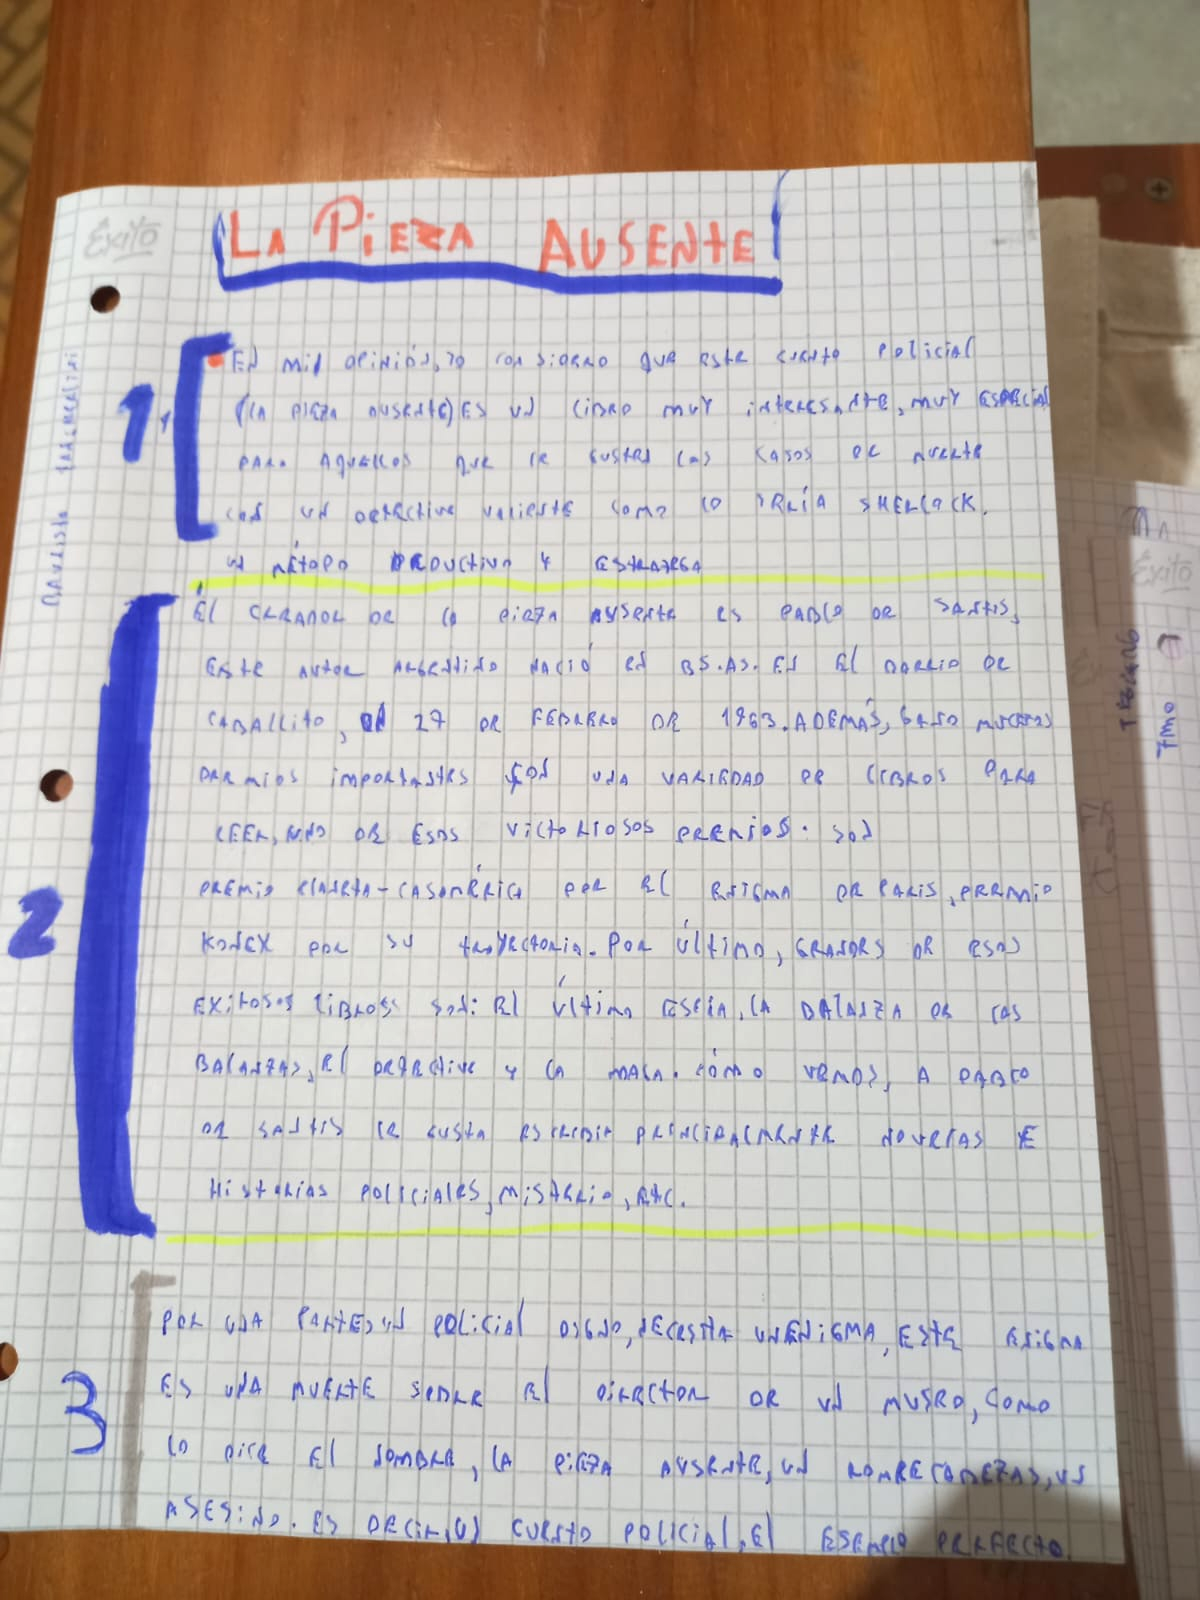 Éxito
LA PIEZA AUSENTE
1
EN MI OPINIÓN, YO CONSIDERO QUE ESTE CUENTO POLICIAL
(LA PIEZA AUSENTE) ES UN LIBRO MUY INTERESANTE, MUY ESPECIAL
PARA AQUELLOS QUE LE GUSTEN LOS CASOS DE MUERTE
CON UN DETECTIVE VALIENTE COMO LO SERÍA SHERLOCK.
UN MÉTODO PRODUCTIVO Y ESTRATEGA
2
ÉL CREADOR DE LA PIEZA AUSENTE ES PABLO DE SANTIS,
ESTE AUTOR ARGENTINO NACIÓ EN BS.AS. EN EL BARRIO DE
CABALLITO, EL 27 DE FEBRERO DE 1963. ADEMÁS, GANO MUCHOS
PREMIOS IMPORTANTES CON UNA VARIEDAD DE LIBROS PARA
LEER, UNO DE ESOS VICTORIOSOS PREMIOS: SON
PREMIO PLANETA-CASAMÉRICA POR EL ENIGMA DE PARIS, PREMIO
KONEX POR SU TRAYECTORIA. POR ÚLTIMO, GRANDES DE ESOS
EXITOSOS LIBROS SON: EL ÚLTIMO ESPÍA, LA BALANZA DE LAS
BALANZAS, EL DETECTIVE Y LA MAGA. CÓMO VEMOS, A PABLO
DE SANTIS LE GUSTA ESCRIBIR PRINCIPALMENTE NOVELAS E
HISTORIAS POLICIALES, MISTERIO, ETC.
3
POR UNA PARTE, UN POLICIAL DIGNO, NECESITA UN ENIGMA, ESTE ENIGMA
ES UNA MUERTE SOBRE EL DIRECTOR DE UN MUSEO, COMO
LO DICE EL NOMBRE, LA PIEZA AUSENTE, UN ROMPECABEZAS, UN
ASESINO. ES DECIR, UN CUENTO POLICIAL, EL EJEMPLO PERFECTO.
Éxito